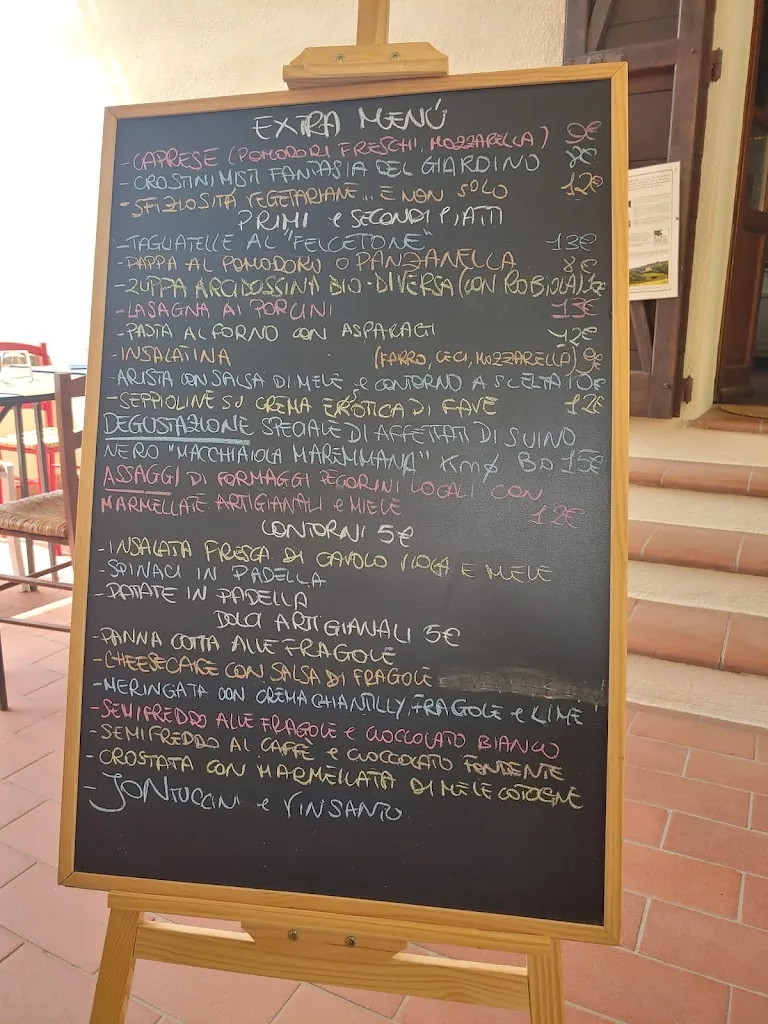 EXTRA MENÚ
- CAPRESE (POMODORI FRESCHI, MOZZARELLA) 9€
- CROSTINI MISTI FANTASIA DEL GIARDINO 8€
- SFIZIOSITÀ VEGETARIANE... E NON SOLO 12€
PRIMI e SECONDI PIATTI
- TAGLIATELLE AL "FELCETONE" 13€
- PAPPA AL POMODORO O PANZANELLA 8€
- ZUPPA ARCIDOSSINA BIO-DIVERSA (CON ROBIOLA)
- LASAGNA AI PORCINI 13€
- PASTA AL FORNO CON ASPARAGI 12€
- INSALATINA (FARRO, CECI, MOZZARELLA) 9€
- ARISTA CON SALSA DI MELE e CONTORNO A SCELTA 10€
- SEPPIOLINE SU CREMA EROTICA DI FAVE 12€
DEGUSTAZIONE SPECIALE DI AFFETTATI DI SUINO
NERO "MACCHIAIOLA MAREMMANA" Km0 BIO 15€
ASSAGGI DI FORMAGGI PECORINI LOCALI CON
MARMELLATE ARTIGIANALI e MIELE 12€
CONTORNI 5€
- INSALATA FRESCA DI CAVOLO VIOLA E MELE
- SPINACI IN PADELLA
- PATATE IN PADELLA
DOLCI ARTIGIANALI 5€
- PANNA COTTA ALLE FRAGOLE
- CHEESECAKE CON SALSA DI FRAGOLE
- MERINGATA CON CREMA CHANTILLY, FRAGOLE e LIME
- SEMIFREDDO ALLE FRAGOLE e CIOCCOLATO BIANCO
- SEMIFREDDO AL CAFFÈ e CIOCCOLATO FONDENTE
- CROSTATA CON MARMELLATA DI MELE COTOGNE
- TONTUCCINI e VINSANTO